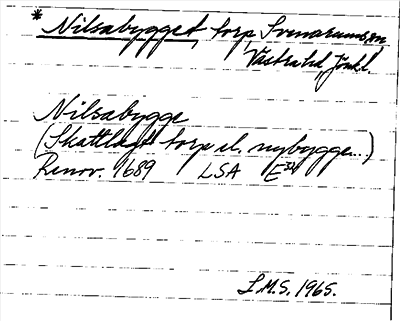 * Nilsabygget, torp, Svenarums sn
Västra hd, Jönk l.
Nilsabygge
(Skattlagt torp el. nybygge..)
Renov. 1689 LSA
L.M.S. 1965.